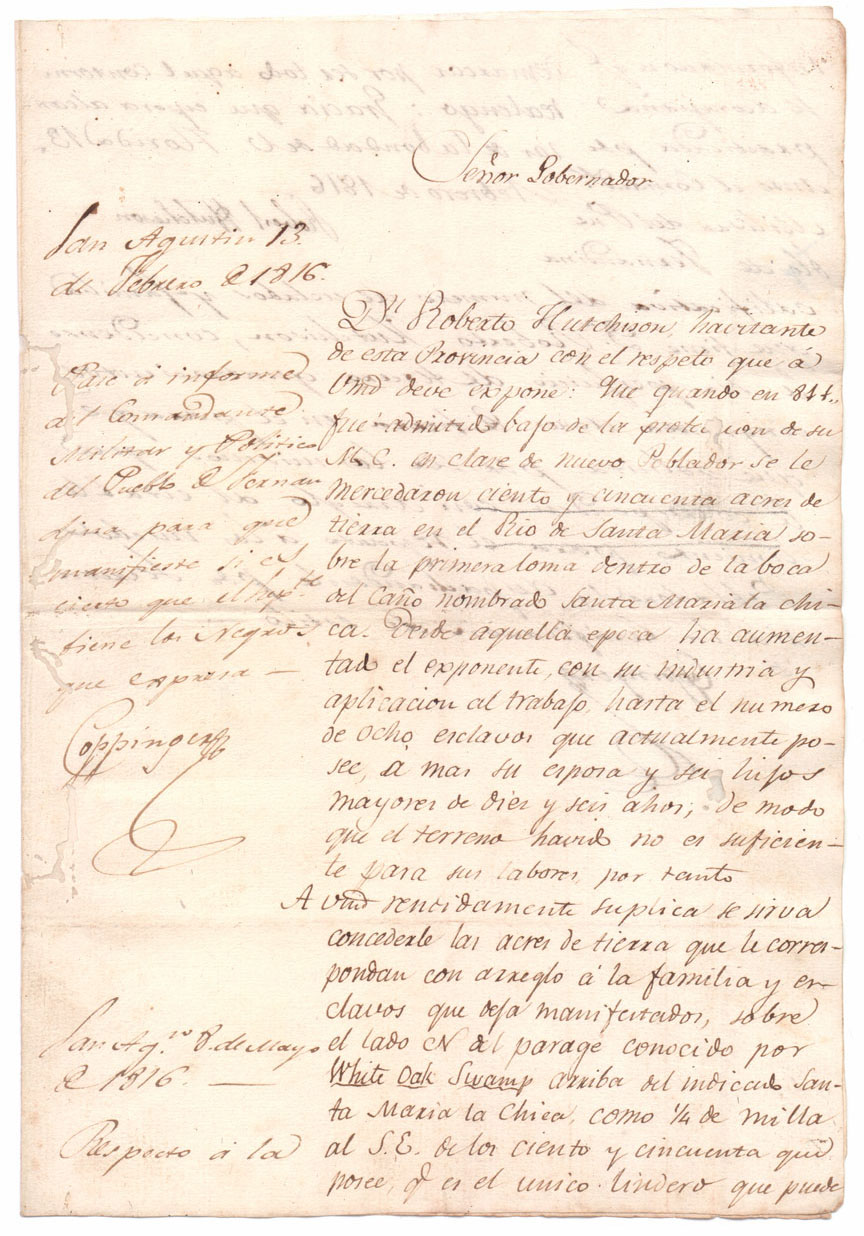 Señor Gobernador
San Agustin 13.
de Febrero de 1816.
Pase á informe
al Comandante
Militar y Politico
del Pueblo de Fernan
dina para que
manifieste si es
cierto que el sup.te
tiene los Negros
que expresa —
Coppinger
Dn Roberto Hutchison, havitante
de esta Provincia con el respeto que á
Vmd deve expone: Que quando en 811.,
fué admitido bajo de la proteccion de su
M. C. en clase de nuevo Poblador se le
mercedaron ciento y cincuenta acres de
tierra en el Rio de Santa Maria so-
bre la primera loma dentro de la boca
del Caño nombrado Santa Maria la chi-
ca. Desde aquella epoca ha aumen-
tado el exponente, con su industria y
aplicacion al trabajo, hasta el numero
de ocho esclavos que actualmente po-
see, á mas su esposa y seis hijos
mayores de dies y seis años; de modo
que el terreno havido no es suficien-
te para sus labores, por tanto
A Vmd rendidamente suplica se sirva
concederle las acres de tierra que le corres-
pondan con arreglo á la familia y es-
clavos que deja manifestados, sobre
el lado N del parage conocido por
White Oak Swamp arriba del indicado San-
ta Maria la Chica, como 1/4 de milla
al S.E. de los ciento y cincuenta que
posee, q.e es el unico lindero que puede
San Ag.n 8. de Mayo
de 1816. —
Respecto á la